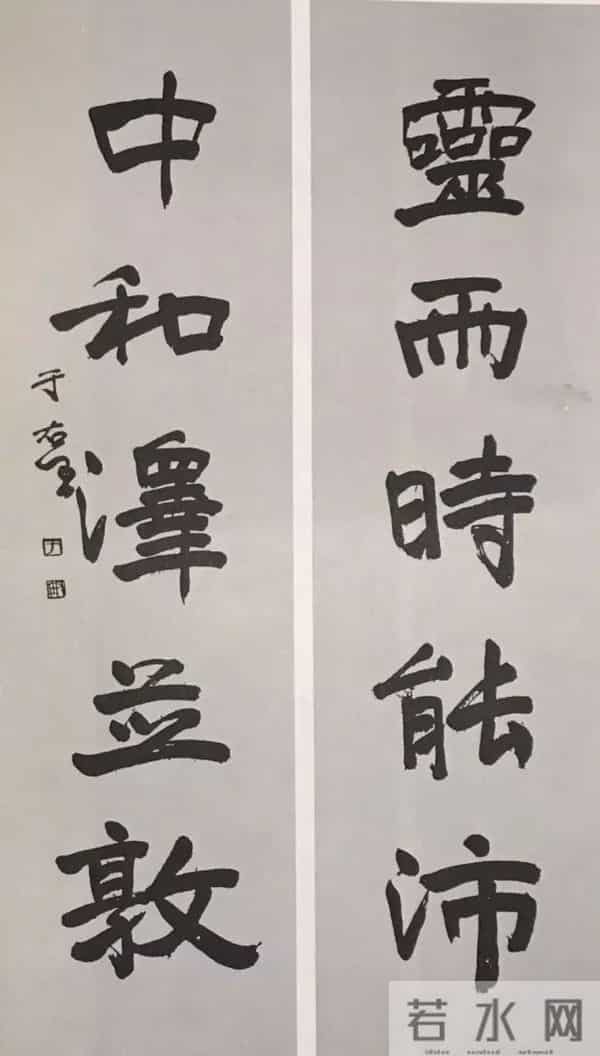 靈雨時能沛
中和澤並敦
于右
若水网